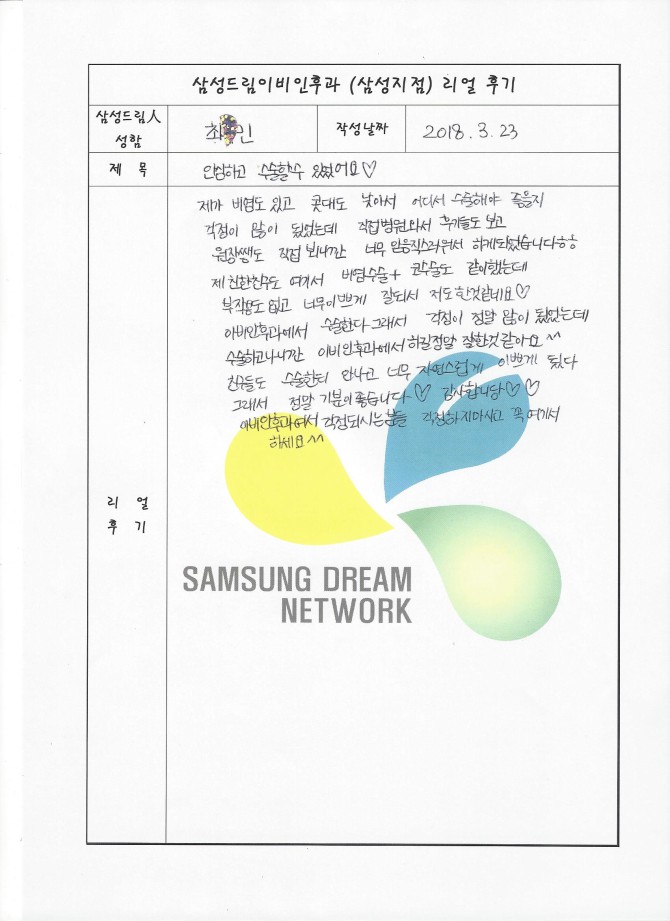 삼성드림이비인후과 (삼성지점) 리얼 후기
삼성드림人
성함
최 민
작성날짜
2018.3.23
제 목
안심하고 수술할수 있었어요♡
제가 비염도 있고 콧대도 낮아서 어디서 수술해야 좋을지
걱정이 많이 됬었는데 직접병원와서 후기들도 보고
원장쌤도 직접 뵈니깐 너무 믿음직스러워서 하게되었습니다ㅎㅎ
제 친한친구도 여기서 비염수술+ 코수술도 같이했는데
부작용도 없고 너무이쁘게 잘되서 저도한것같네요♡
이비인후과에서 수술한다 그래서 걱정이 정말 많이 됬었는데
수술하고나니깐 이비인후과에서하길정말 잘한것같아요^^
친구들도 수술한티 안나고 너무 자연스럽게 이쁘게 됬다
그래서 정말 기분이좋습니다♡ 감사합니당♡♡
이비인후과여서 걱정되시는분들 걱정하지마시고 꼭 여기서
하세요^^
리 얼
후 기
SAMSUNG DREAM
NETWORK